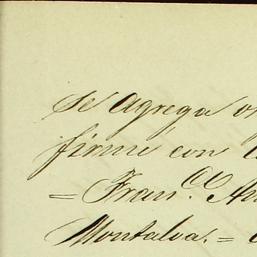 se agrega
firmé con
= Fran.co
Montalva. =